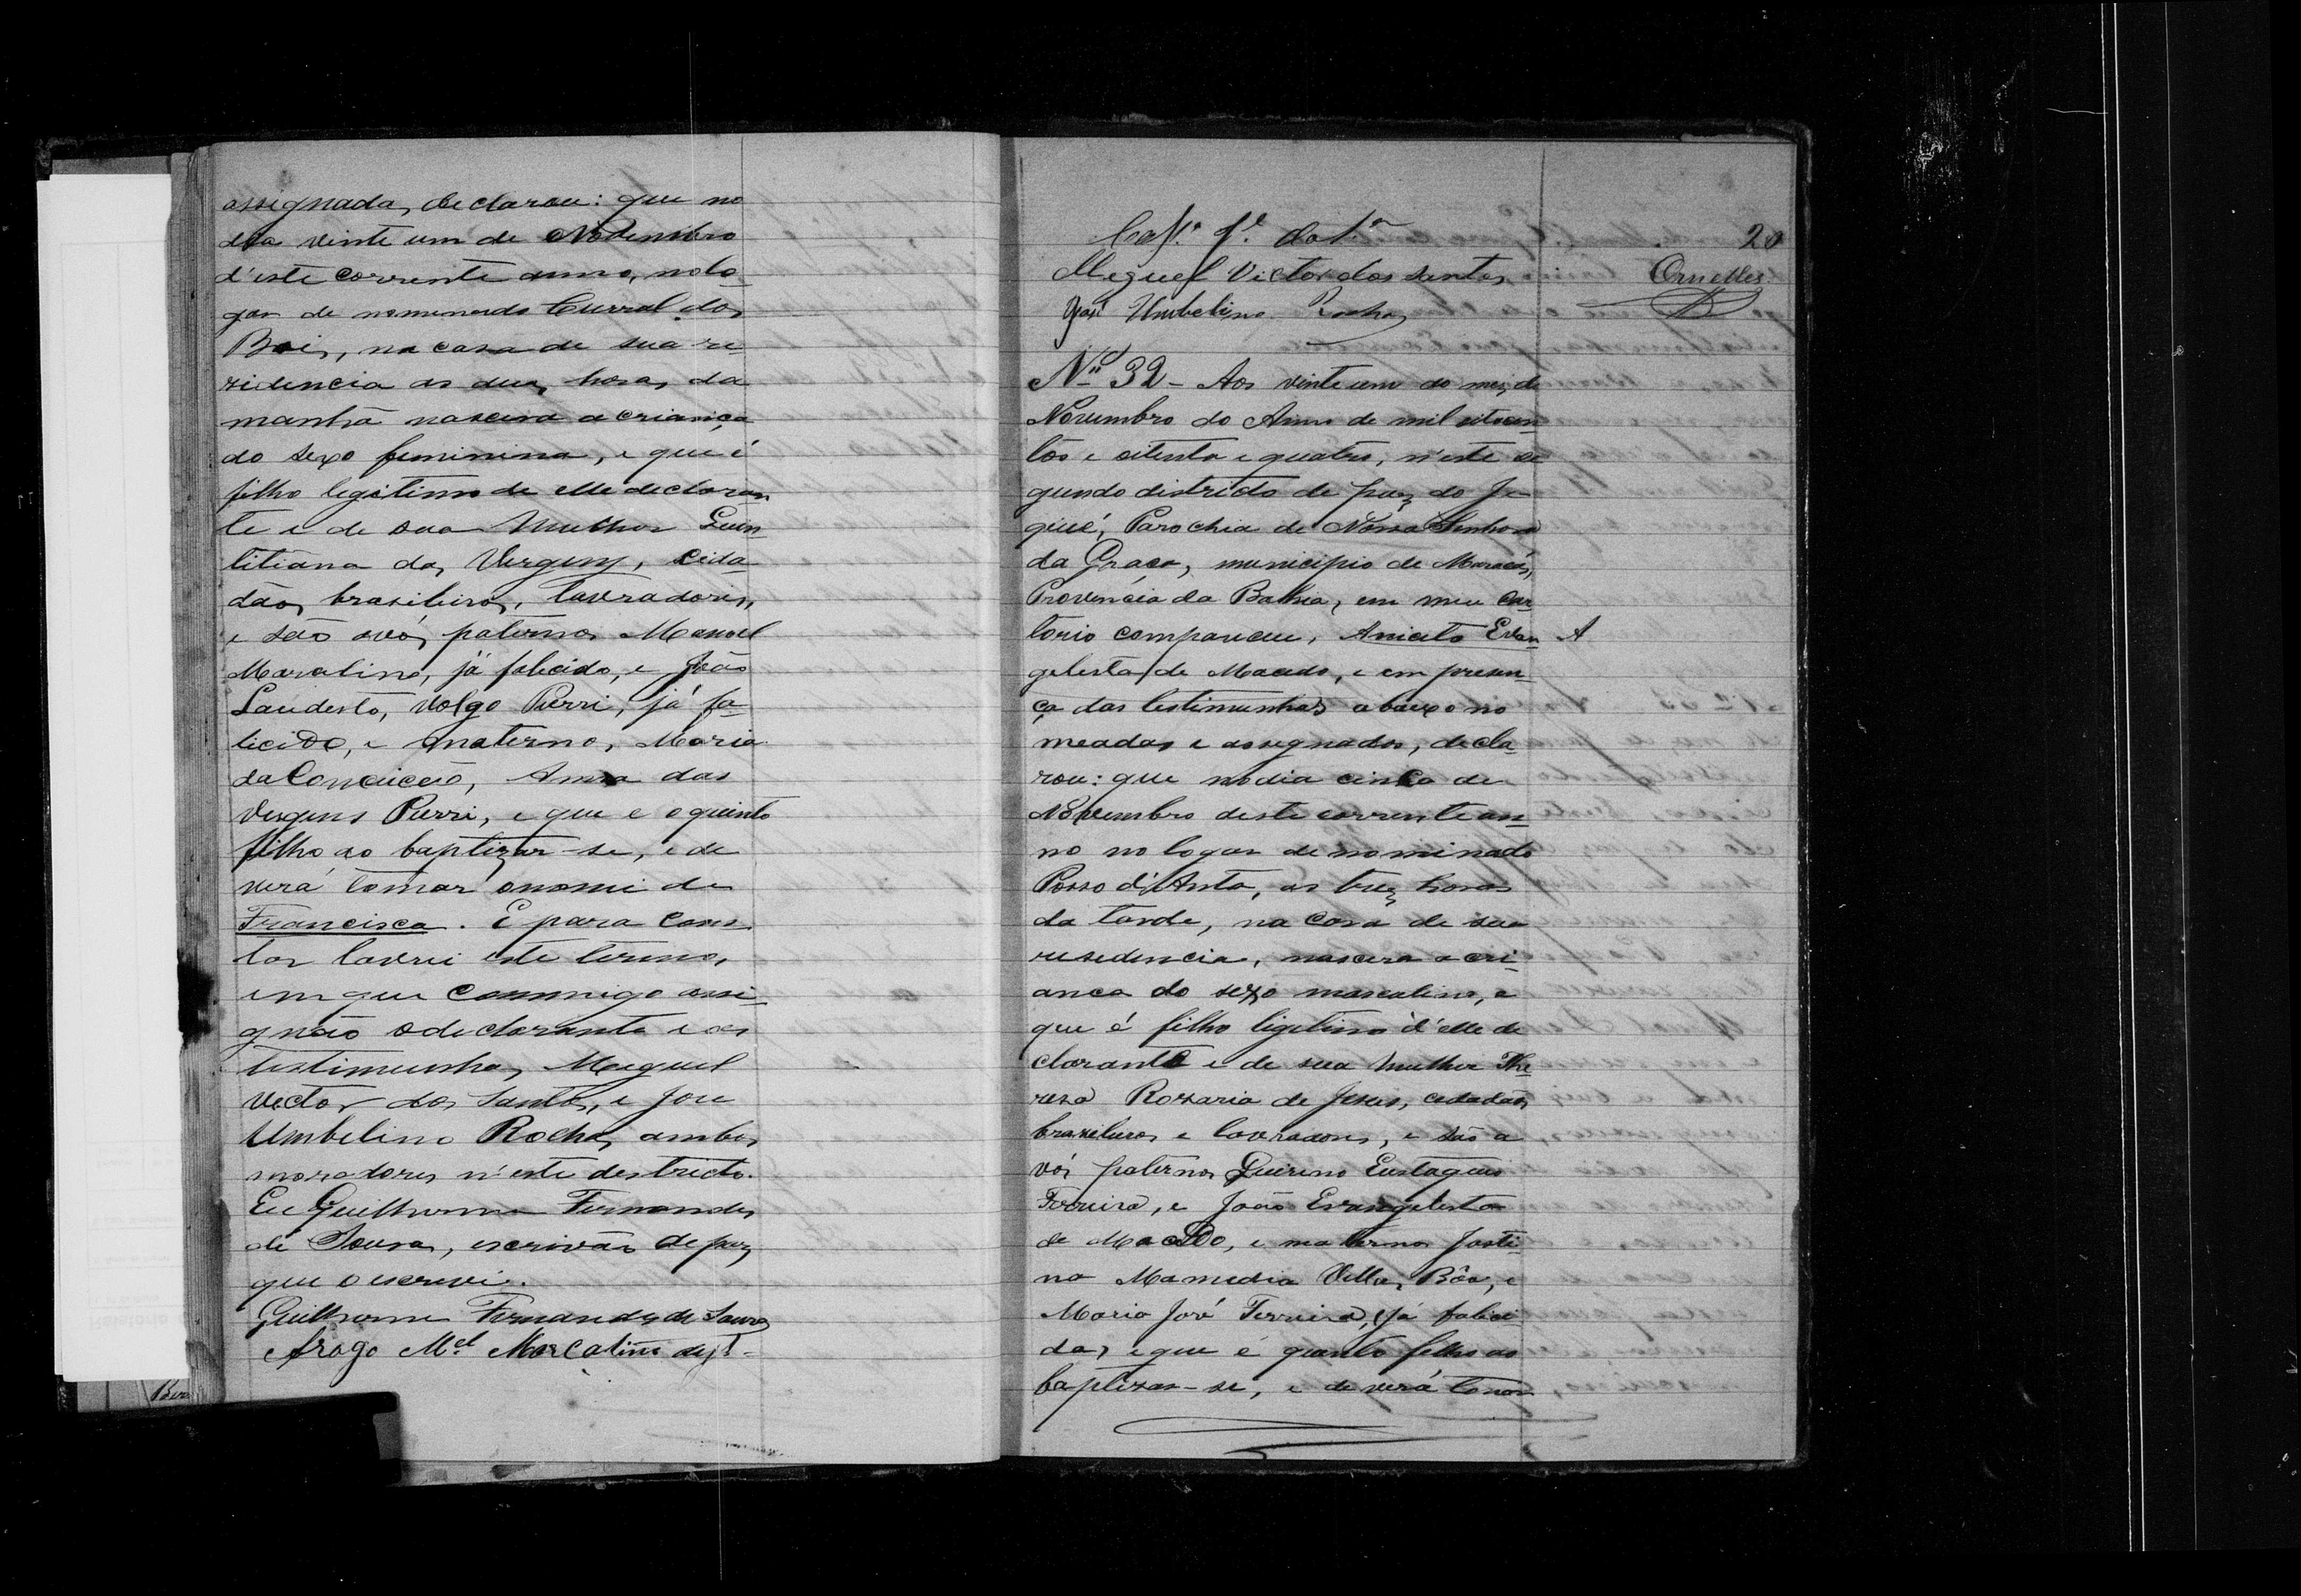 assignada, declarou: que no
dia vinte um de Novembro
d'este corrente anno, no lo-
gar de nominado Curral dos
Bois, na casa de sua re-
zidencia as duas horas da
manhã nascera a criança
do sexo feminina, e que é
filho legitimo de elle declaran-
te e de sua Mulher Quin-
litiana das Virgens, cida-
dãos brasileiros, lavradores,
e são avós paternos Manoel
Marcalino, já falecido, e João
Laudesto, volgo Purri, já fa-
licido, e maternos, Maria
da Conceição, Anna das
Vergens Purri, e que e o quinto
filho ao baptizar-se, e de
verá tomar o nome de
Francisca. E para cons-
tar lavrei este termo,
em que commigo assi-
gnão o declarante e as
testimunhas, Meguel
Vector dos Santos, e José
Umbelino Rocha, ambos
moradores n'este destricto.
Eu Guilherme Fernandes
de Sousa, escrivão de paz
que o escrevi.
Guilherme Fernandes de Souza
Arogo Mel Marcalino de
20
Meguel Victor dos Santos
Ornelles
José Umbelino Rocha
No 32 - Aos vinte um do mez de
Novembro do Anno de mil oitocen-
tos e oitenta e quatro, n'este se
gundo districto de paz do Je-
quié, Parochia de Nossa Senhora
da Graça, municipio de Maracás,
Provincia da Bahia, em meu Car-
torio compareceu, Aniceto Evan- A
gelesta de Macedo, e em presen-
ça das testimunhas abaixo no
meadas e assegnados, decla-
rou: que no dia cinco de
Novembro deste corrente an-
no no logar de nominado
Posso d'Anta, as trez horas
da tarde, na casa de sua
resedencia, nascera a cri-
anca do sexo masculino, e
que é filho ligitimo d'elle de
clarante e de sua Mulher The
resa Rozaria de Jesus, cedadãos
brazileiros e lavradores, e são a
vós paternos Quireno Eustaqueo
Ferreira, e João Evangelesta
de Macedo, e maternos Justi-
na Mamedia Villas Bôas, e
Maria José Ferreira, já falici
das, e que é quinto filho ao
baptizar-se, e deverá tomar